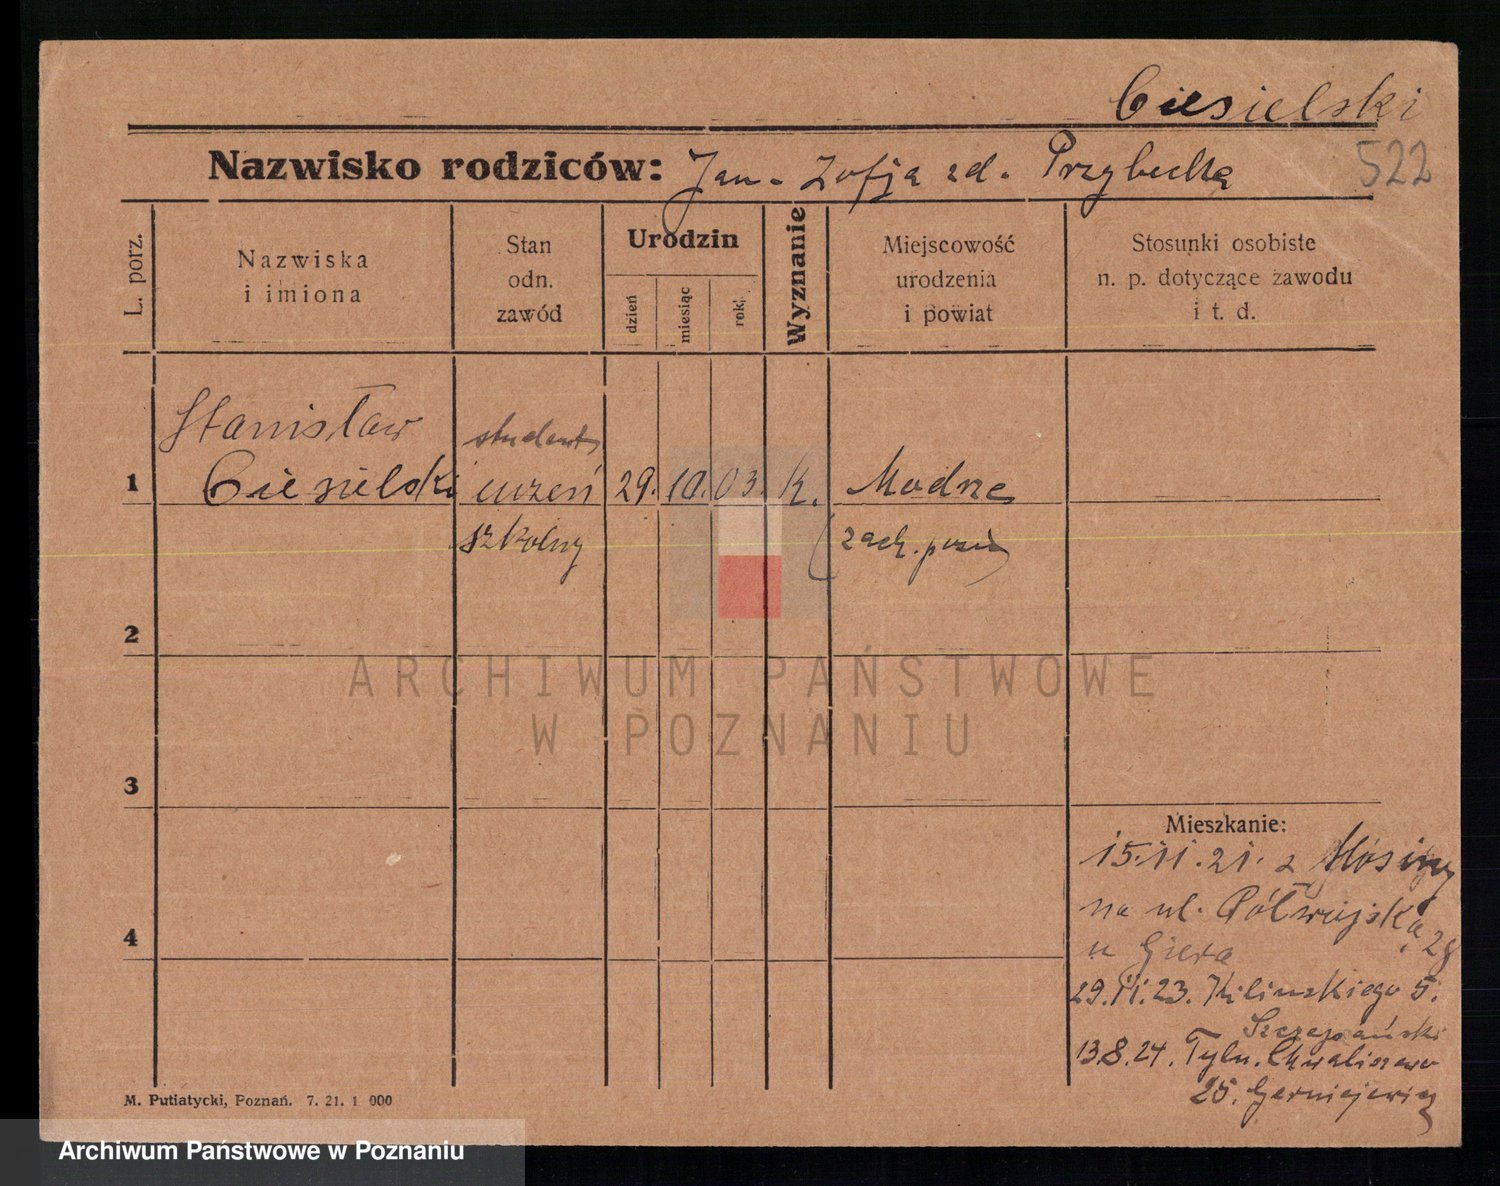 Ciesielski
Nazwisko rodziców: Jan - Zofja zd. Przybecka
522
L. porz.
Nazwiska
i imiona
Stan
odn.
zawód
Urodzin
dzień
miesiąc
rok
Wyznanie
Miejscowość
urodzenia
i powiat
Stosunki osobiste
n. p. dotyczące zawodu
i t. d.
Stanisław
student
1 Ciesielski uczeń 29. 10. 03. k. Modrze
szkolny (zach. pozn)
2
ARCHIWUM PAŃSTWOWE
W POZNANIU
3
Mieszkanie:
15.11.21. z Mosiny
na ul. Półwiejską 28
4
u Giera
29.11.23. Kilinskiego 5.
Szczepański
13.8.24. Tyln. Chwaliszewo
25.
M. Putiatycki, Poznań. 7. 21. 1 000
Archiwum Państwowe w Poznaniu